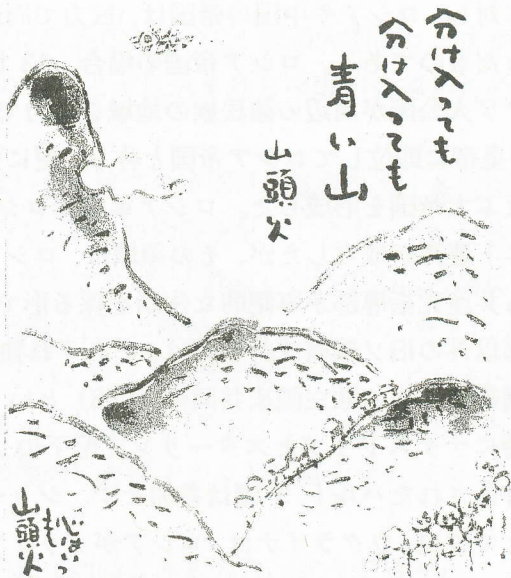 分け入っても
分け入っても
青い山
山頭火
山頭火